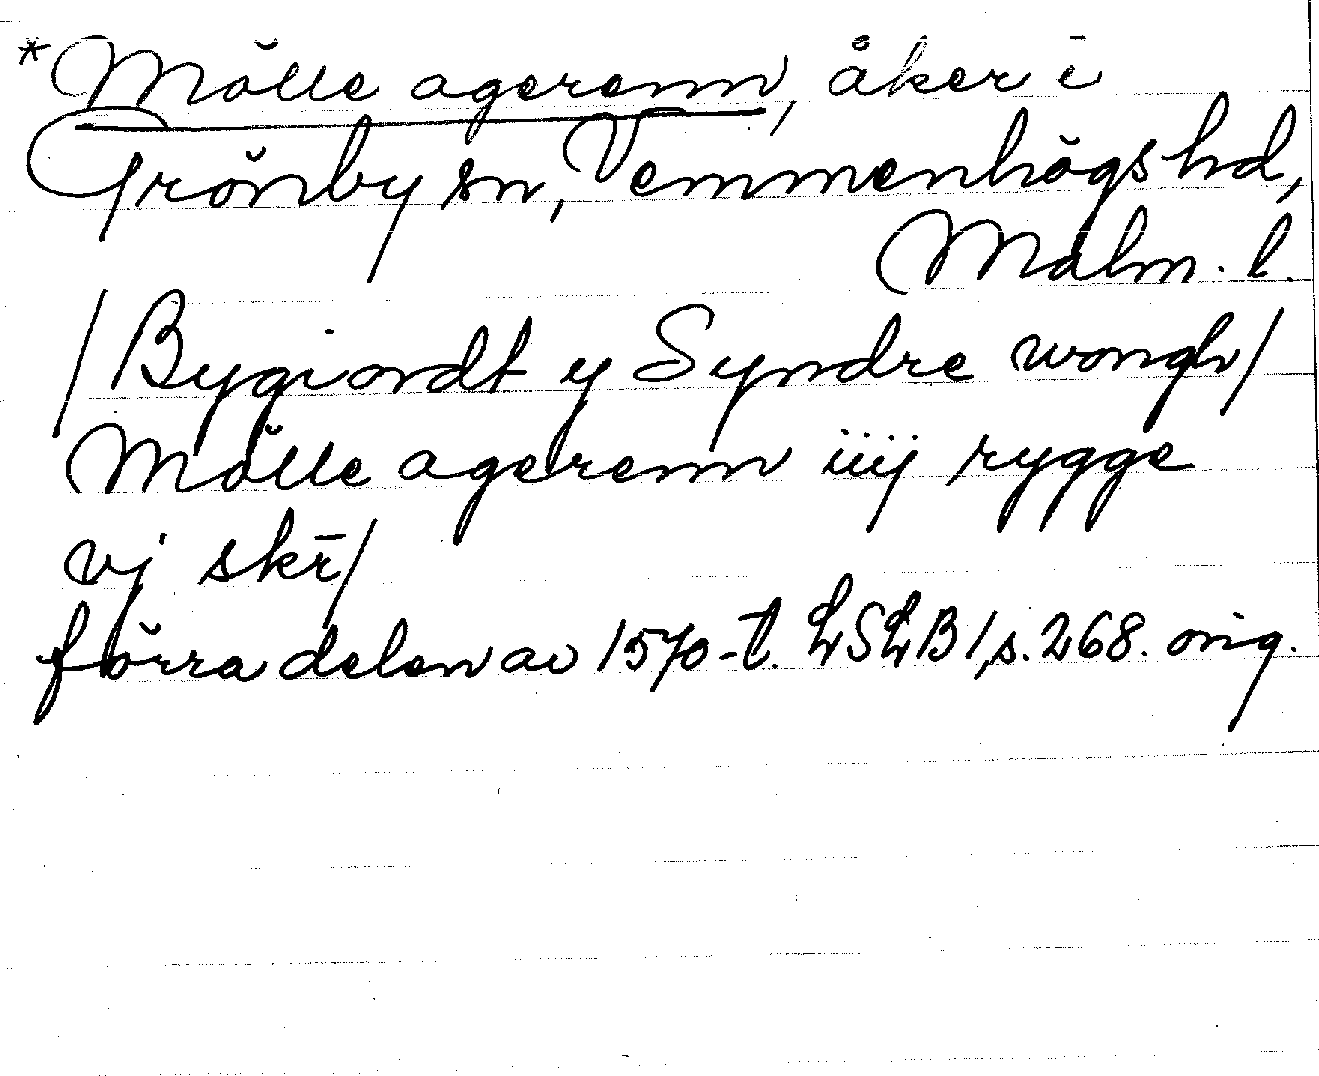 *Mölle agerenn, åker i
Grönby sn, Vemmenhögs hd,
Malm. l.
/Bygiordt y Syndre wongh/
Mölle agerenn iiij rygge
vj skr̄/
förra delen av 1570-t. LSLB 1, s. 268. orig.